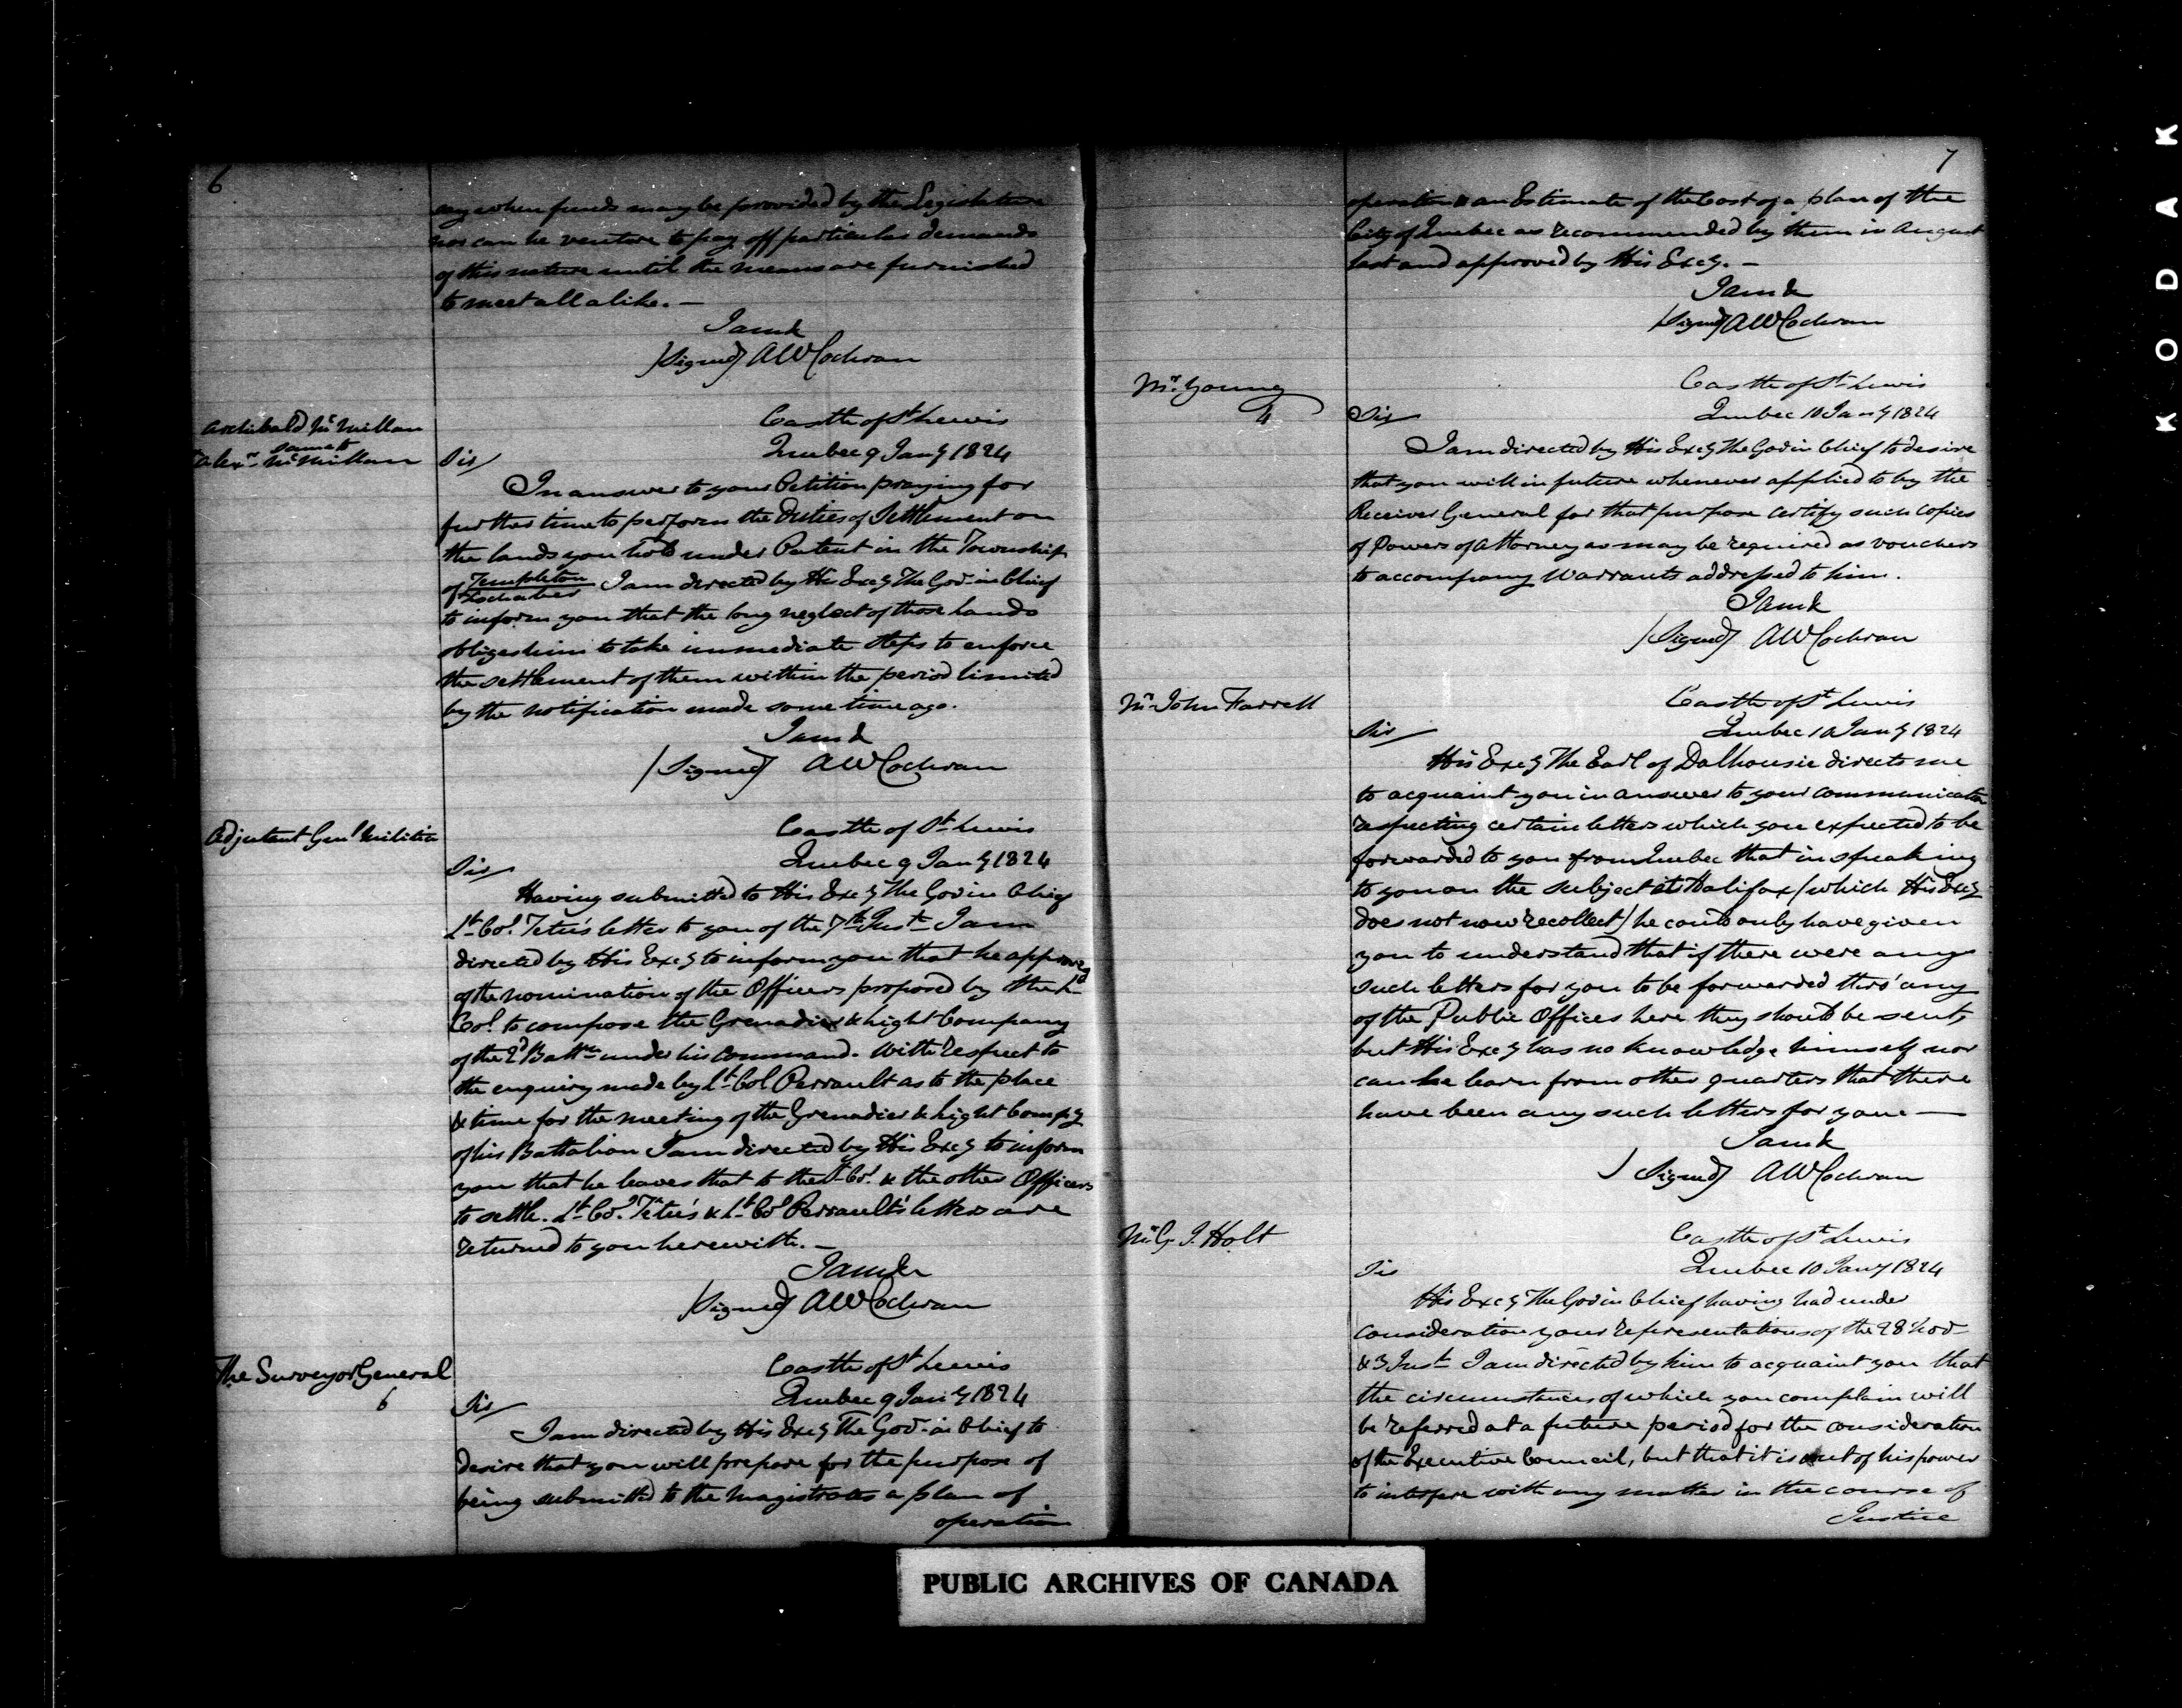 6
any when funds may be provided by the Legislature
nor can he venture to pay off particular demands
of this nature until the means are furnished
to meet all alike. —
I am &
(Signed) AW Cochran
Archibald McMillan
same to
Alexr McMillan
Castle of St Lewis
Quebec 9 Jany 1824
Sir/
In answer to your Petition praying for
further time to perform the Duties of Settlement on
the lands you hold under Patent in the Township
of Templeton
Lochaber I am directed by His Excy The Gov. in Chief
to inform you that the long neglect of those lands
obliges him to take immediate steps to enforce
the settlement of them within the period limited
by the notification made some time ago.
I am &
(Signed) AW Cochran
Adjutant Genl Militia
Castle of St Lewis
Quebec 9 Jany 1824
Sir/
Having submitted to His Excy The Gov in Chief
Lt Col. Tetu's letter to you of the 7th Inst I am
directed by His Excy to inform you that he approves
of the nomination of the Officers proposed by the Lt
Col. to compose the Grenadier & Light Company
of the 2d Battn under his command. With respect to
the enquiry made by Lt Col Perrault as to the place
& time for the meeting of the Grenadier & Light Compy
of his Battalion I am directed by His Excy to inform
you that he leaves that to the Lt Col. & the other Officers
to settle. Lt Col. Tetu's & Lt Col Perrault's letters are
returned to you herewith. —
I am &
(Signed) AW Cochran
The Surveyor General
6
Castle of St Lewis
Quebec 9 Jany 1824
Sir/
I am directed by His Excy The Gov. in Chief to
desire that you will prepare for the purpose of
being submitted to the Magistrates a plan of
operation
7
operation & an Estimate of the Cost of a plan of the
City of Quebec as recommended by them in August
last and approved by His Excy. —
I am &
(Signed) AW Cochran
Mr. Young
4
Castle of St Lewis
Quebec 10 Jany 1824
Sir/
I am directed by His Excy The Gov in Chief to desire
that you will in future whenever applied to by the
Receiver General for that purpose certify such copies
of Powers of Attorney as may be required as vouchers
to accompany Warrants addressed to him.
I am &
(Signed) AW Cochran
Mr John Farrell
Castle of St Lewis
Quebec 10 Jany 1824
Sir/
His Excy The Earl of Dalhousie directs me
to acquaint you in answer to your communication
respecting certain letters which you expected to be
forwarded to you from Quebec that in speaking
to you on the subject at Halifax (which His Excy
does not now recollect) he could only have given
you to understand that if there were any
such letters for you to be forwarded thro' any
of the Public Offices here they should be sent,
but His Excy has no knowledge himself nor
can he learn from other quarters that there
have been any such letters for you. —
I am &
(Signed) AW Cochran
Mr G. J. Holt
Castle of St Lewis
Quebec 10 Jany 1824
Sir
His Excy The Gov in Chief having had under
consideration your representations of the 28 Nov
& 3 Inst I am directed by him to acquaint you that
the circumstances of which you complain will
be referred at a future period for the consideration
of the Executive Council, but that it is out of his power
to interfere with any matter in the course of
Justice
PUBLIC ARCHIVES OF CANADA
KODAK